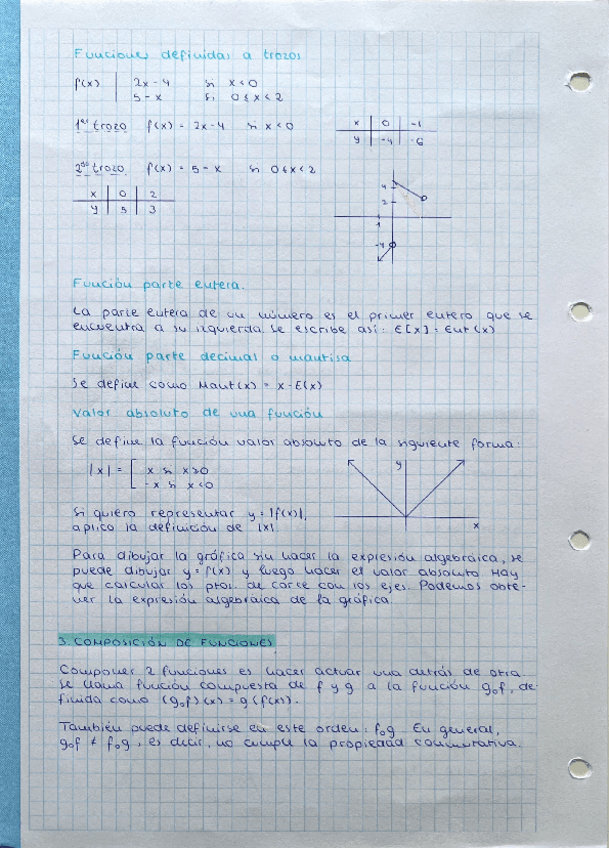 Funciones definidas a trozos
f(x) | 2x - 4 si x < 0
5 - x si 0 ≤ x < 2
1er trozo f(x) = 2x - 4 si x < 0
x | 0 | -1
y | -4 | -6
2do trozo f(x) = 5 - x si 0 ≤ x < 2
x | 0 | 2
y | 5 | 3
4
2
1
-4
Función parte entera.
La parte entera de un número es el primer entero que se
encuentra a su izquierda. Se escribe así: E[x] = Ent(x)
Función parte decimal o mantisa
Se define como Mant(x) = x - E(x)
Valor absoluto de una función
Se define la función valor absoluto de la siguiente forma:
|x| = [ x si x ≥ 0
-x si x < 0
y
x
Si quiero representar y = |f(x)|,
aplico la definición de |x|.
Para dibujar la gráfica sin hacer la expresión algebráica, se
puede dibujar y = f(x) y luego hacer el valor absoluto. Hay
que calcular los ptos. de corte con los ejes. Podemos obte-
ner la expresión algebraica de la gráfica.
3. COMPOSICIÓN DE FUNCIONES
Componer 2 funciones es hacer actuar una detrás de otra
Se llama función compuesta de f y g a la función g∘f, de-
finida como (g∘f)(x) = g(f(x)).
También puede definirse en este orden: f∘g. En general,
g∘f ≠ f∘g, es decir, no cumple la propiedad conmutativa.